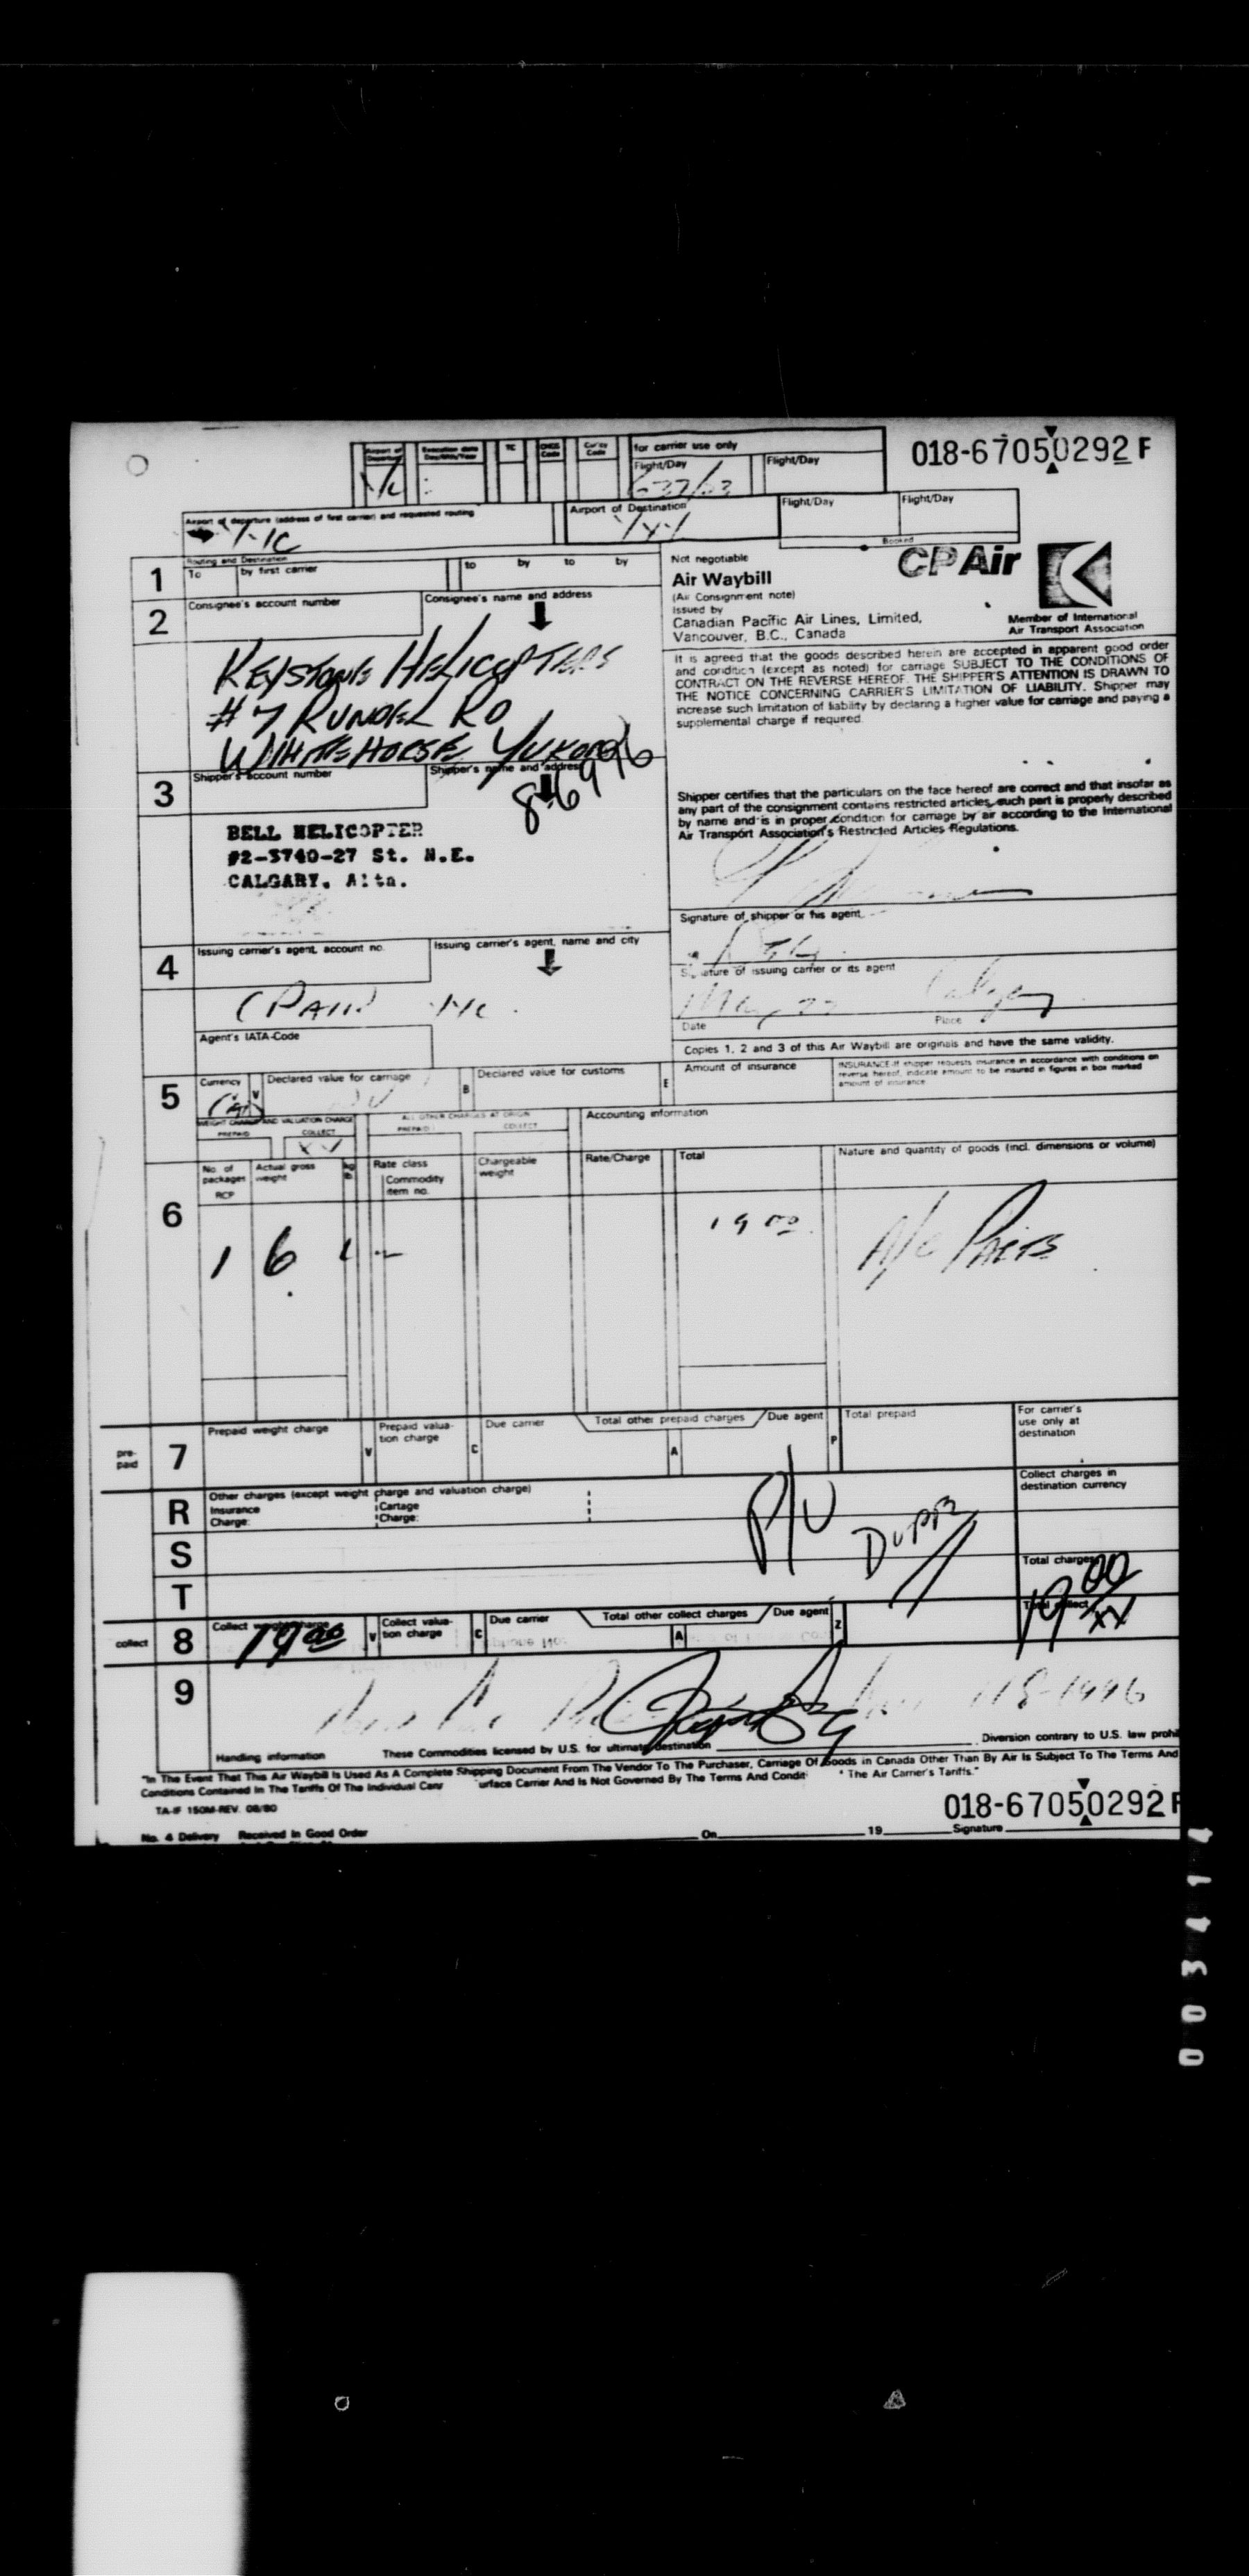 018-67050292 F
Airport of Departure
Execution date
TC
CHGS Code
Cur'cy Code
for carrier use only
Flight/Day
Flight/Day
Airport of departure (address of first carrier) and requested routing
Airport of Destination
Flight/Day
Flight/Day
YYC
Booked
1
Routing and Destination
To by first carrier to by to by
Not negotiable
Air Waybill
(Air Consignment note)
Issued by
Canadian Pacific Air Lines, Limited,
Vancouver, B.C., Canada
CP Air
Member of International
Air Transport Association
2
Consignee's account number
Consignee's name and address
KEYSTONE HELICOPTERS
#7 RUNDEL RD
WHITEHORSE YUKON
It is agreed that the goods described herein are accepted in apparent good order
and condition (except as noted) for carriage SUBJECT TO THE CONDITIONS OF
CONTRACT ON THE REVERSE HEREOF. THE SHIPPER'S ATTENTION IS DRAWN TO
THE NOTICE CONCERNING CARRIER'S LIMITATION OF LIABILITY. Shipper may
increase such limitation of liability by declaring a higher value for carriage and paying a
supplemental charge if required.
3
Shipper's account number
Shipper's name and address
BELL HELICOPTER
#2-3740-27 St. N.E.
CALGARY, Alta.
Shipper certifies that the particulars on the face hereof are correct and that insofar as
any part of the consignment contains restricted articles, such part is properly described
by name and is in proper condition for carriage by air according to the International
Air Transport Association's Restricted Articles Regulations.
Signature of shipper or his agent
4
Issuing carrier's agent, account no.
Issuing carrier's agent, name and city
CPAIR YYC
Signature of issuing carrier or its agent
Date Place
Agent's IATA-Code
Copies 1, 2 and 3 of this Air Waybill are originals and have the same validity.
5
Currency
V
Declared value for carriage
B
Declared value for customs
E
Amount of insurance
INSURANCE-If shipper requests insurance in accordance with conditions on
reverse hereof, indicate amount to be insured in figures in box marked
amount of insurance
WEIGHT CHARGE AND VALUATION CHARGE
PREPAID COLLECT
ALL OTHER CHARGES AT ORIGIN
PREPAID COLLECT
Accounting information
6
No. of packages RCP
Actual gross weight
kg lb
Rate class
Commodity item no.
Chargeable weight
Rate/Charge
Total
Nature and quantity of goods (incl. dimensions or volume)
1 6 L 19 00 A/C PARTS
pre-paid
7
Prepaid weight charge
V
Prepaid valuation charge
C
Due carrier
Total other prepaid charges
Due agent
A
P
Total prepaid
For carrier's
use only at
destination
R
Other charges (except weight charge and valuation charge)
Insurance Charge:
Cartage Charge:
Collect charges in
destination currency
P/U
S
T
Total charges
19 00
XX
Total collect
collect
8
Collect weight charge
19 00
V
Collect valuation charge
C
Due carrier
Total other collect charges
Due agent
A
Z
9
Handling information
These Commodities licensed by U.S. for ultimate destination
Diversion contrary to U.S. law prohi
"In The Event That This Air Waybill Is Used As A Complete Shipping Document From The Vendor To The Purchaser, Carriage Of Goods in Canada Other Than By Air Is Subject To The Terms And
Conditions Contained In The Tariffs Of The Individual Carr urface Carrier And Is Not Governed By The Terms And Condit The Air Carrier's Tariffs."
TA-IF 150M-REV. 08/80
018-67050292 F
No. 4 Delivery Received In Good Order On 19 Signature
003414